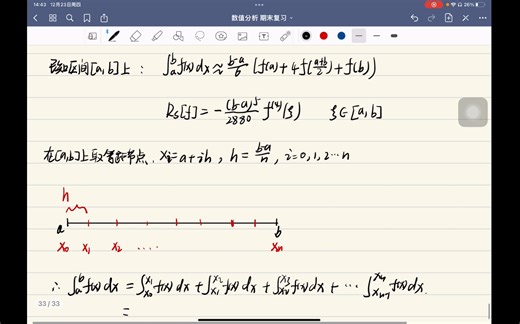 14:43 12月23日周四
26%
数值分析 期末复习
在区间[a,b]上: ∫ₐᵇf(x)dx ≈ (b-a)/6 (f(a)+4f((a+b)/2)+f(b))
Rs[f] = -(b-a)⁵/2880 f⁽⁴⁾(ξ) ξ∈[a,b]
在[a,b]上取等距节点, xi=a+ih, h=(b-a)/n, i=0,1,2…n
h
a b
x₀ x₁ x₂ .... xn
∴ ∫ₐᵇf(x)dx = ∫ₓ₀ˣ¹f(x)dx + ∫ₓ₁ˣ²f(x)dx + ∫ₓ₂ˣ³f(x)dx + … ∫xₙ₋₁ˣⁿf(x)dx.
33 / 33
=